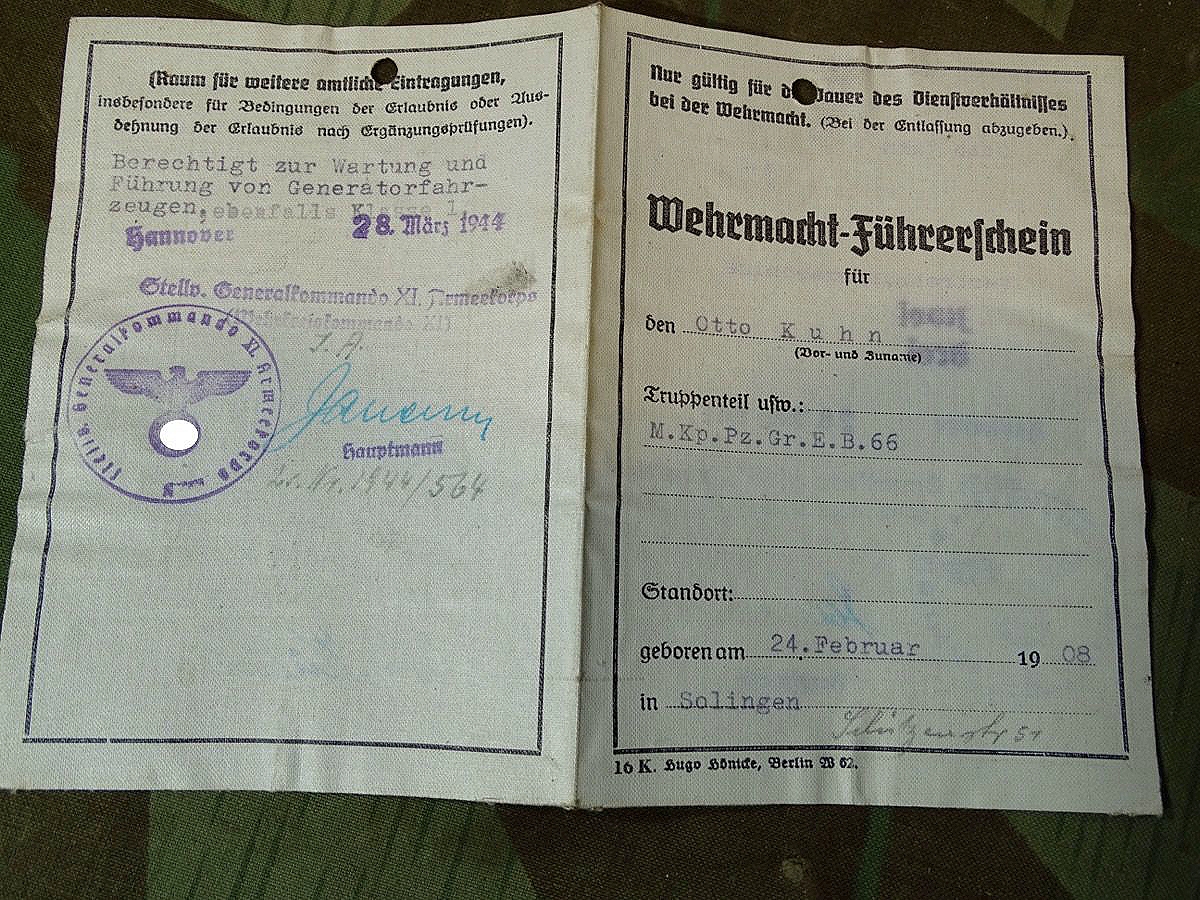 (Raum für weitere amtliche Eintragungen,
insbesondere für Bedingungen der Erlaubnis oder Aus-
dehnung der Erlaubnis nach Ergänzungsprüfungen).
Berechtigt zur Wartung und
Führung von Generatorfahr-
zeugen, ebenfalls Klasse 1.
Hannover 28. März 1944
Stellv. Generalkommando XI. Armeekorps
(Wehrkreiskommando XI)
I. A.
Stellv. Generalkommando XI. Armeekorps
Hauptmann
1944/564
Nur gültig für d Dauer des Dienstverhältnisses
bei der Wehrmacht. (Bei der Entlassung abzugeben.)
Wehrmacht-Führerschein
für
den Otto Kuhn
(Vor- und Zuname)
Truppenteil usw.:
M.Kp.Pz.Gr.E.B.66
Standort:
geboren am 24.Februar 19 08
in Solingen
Schützenstr 51
16 K. Hugo Hönicke, Berlin W 62.